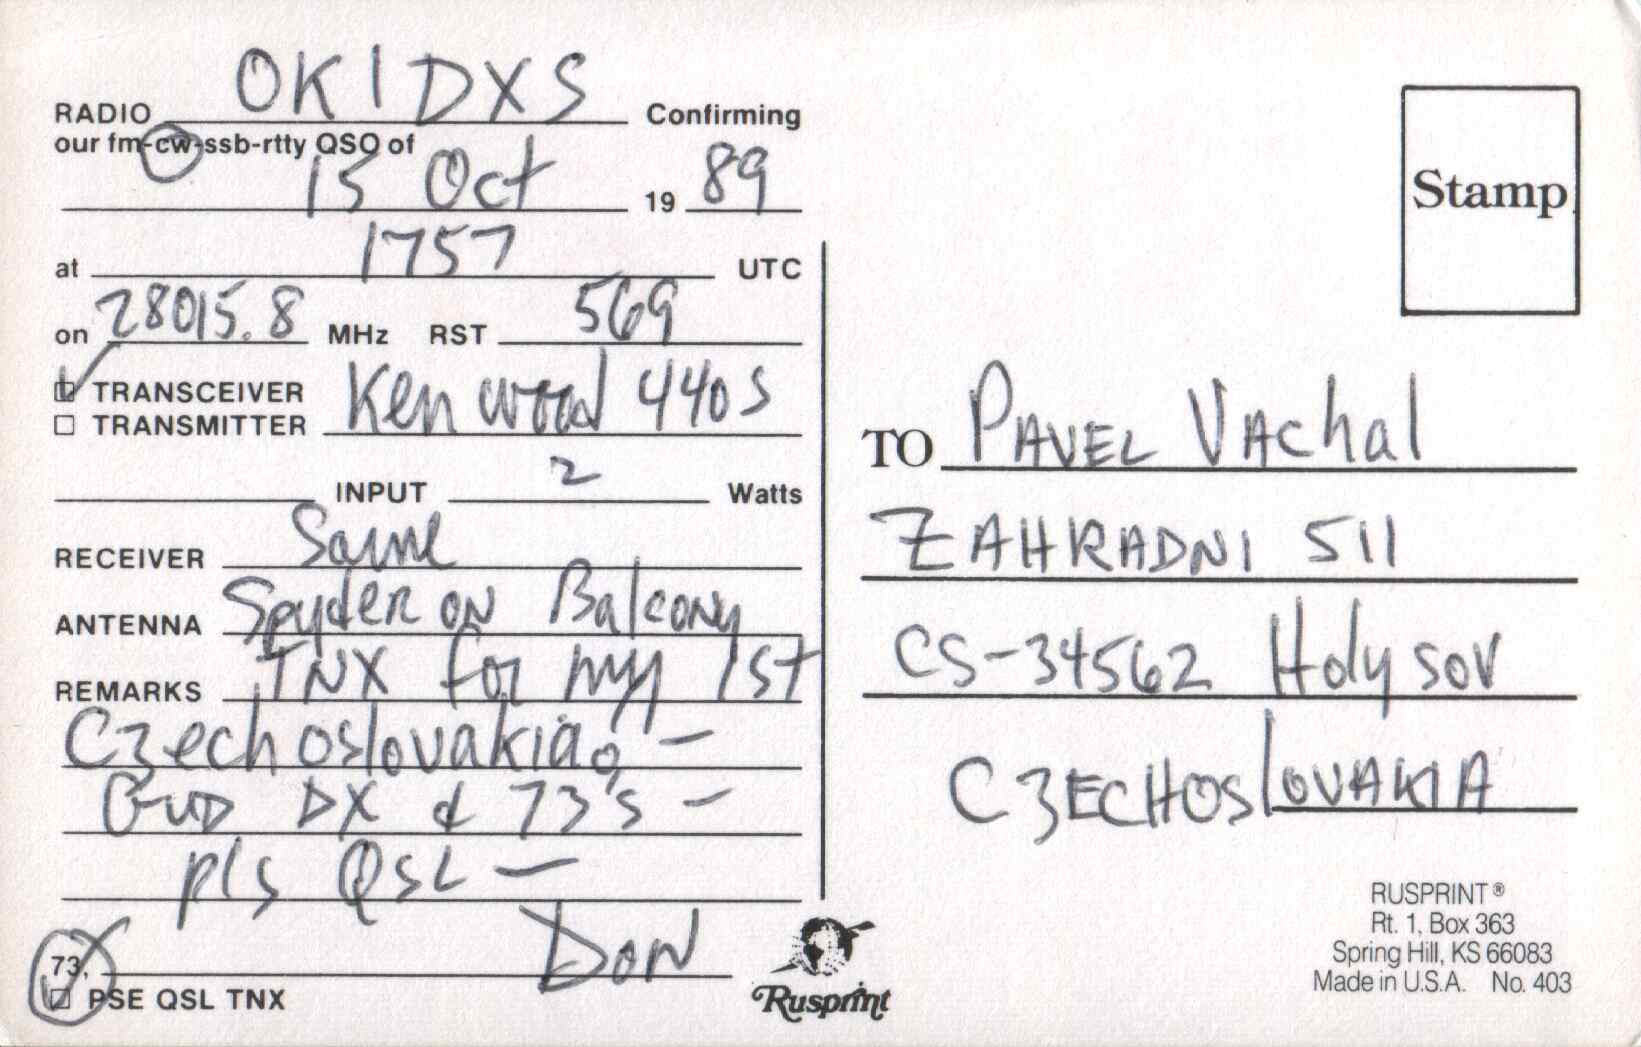 RADIO OK1DXS Confirming
our fm-cw-ssb-rtty QSO of
15 Oct 19 89
at 1757 UTC
on 28015.8 MHz RST 569
TRANSCEIVER Kenwood 440S
TRANSMITTER
INPUT 2 Watts
RECEIVER Same
ANTENNA Spyder on Balcony
REMARKS TNX for my 1st
Czechoslovakia QSO –
Gud DX & 73's –
pls QSL –
73, Don
PSE QSL TNX
Rusprint
Stamp
TO PAVEL VAchal
ZAHRADNI 511
CS-34562 Holysov
CZECHOSLOVAKIA
RUSPRINT®
Rt. 1, Box 363
Spring Hill, KS 66083
Made in U.S.A. No. 403